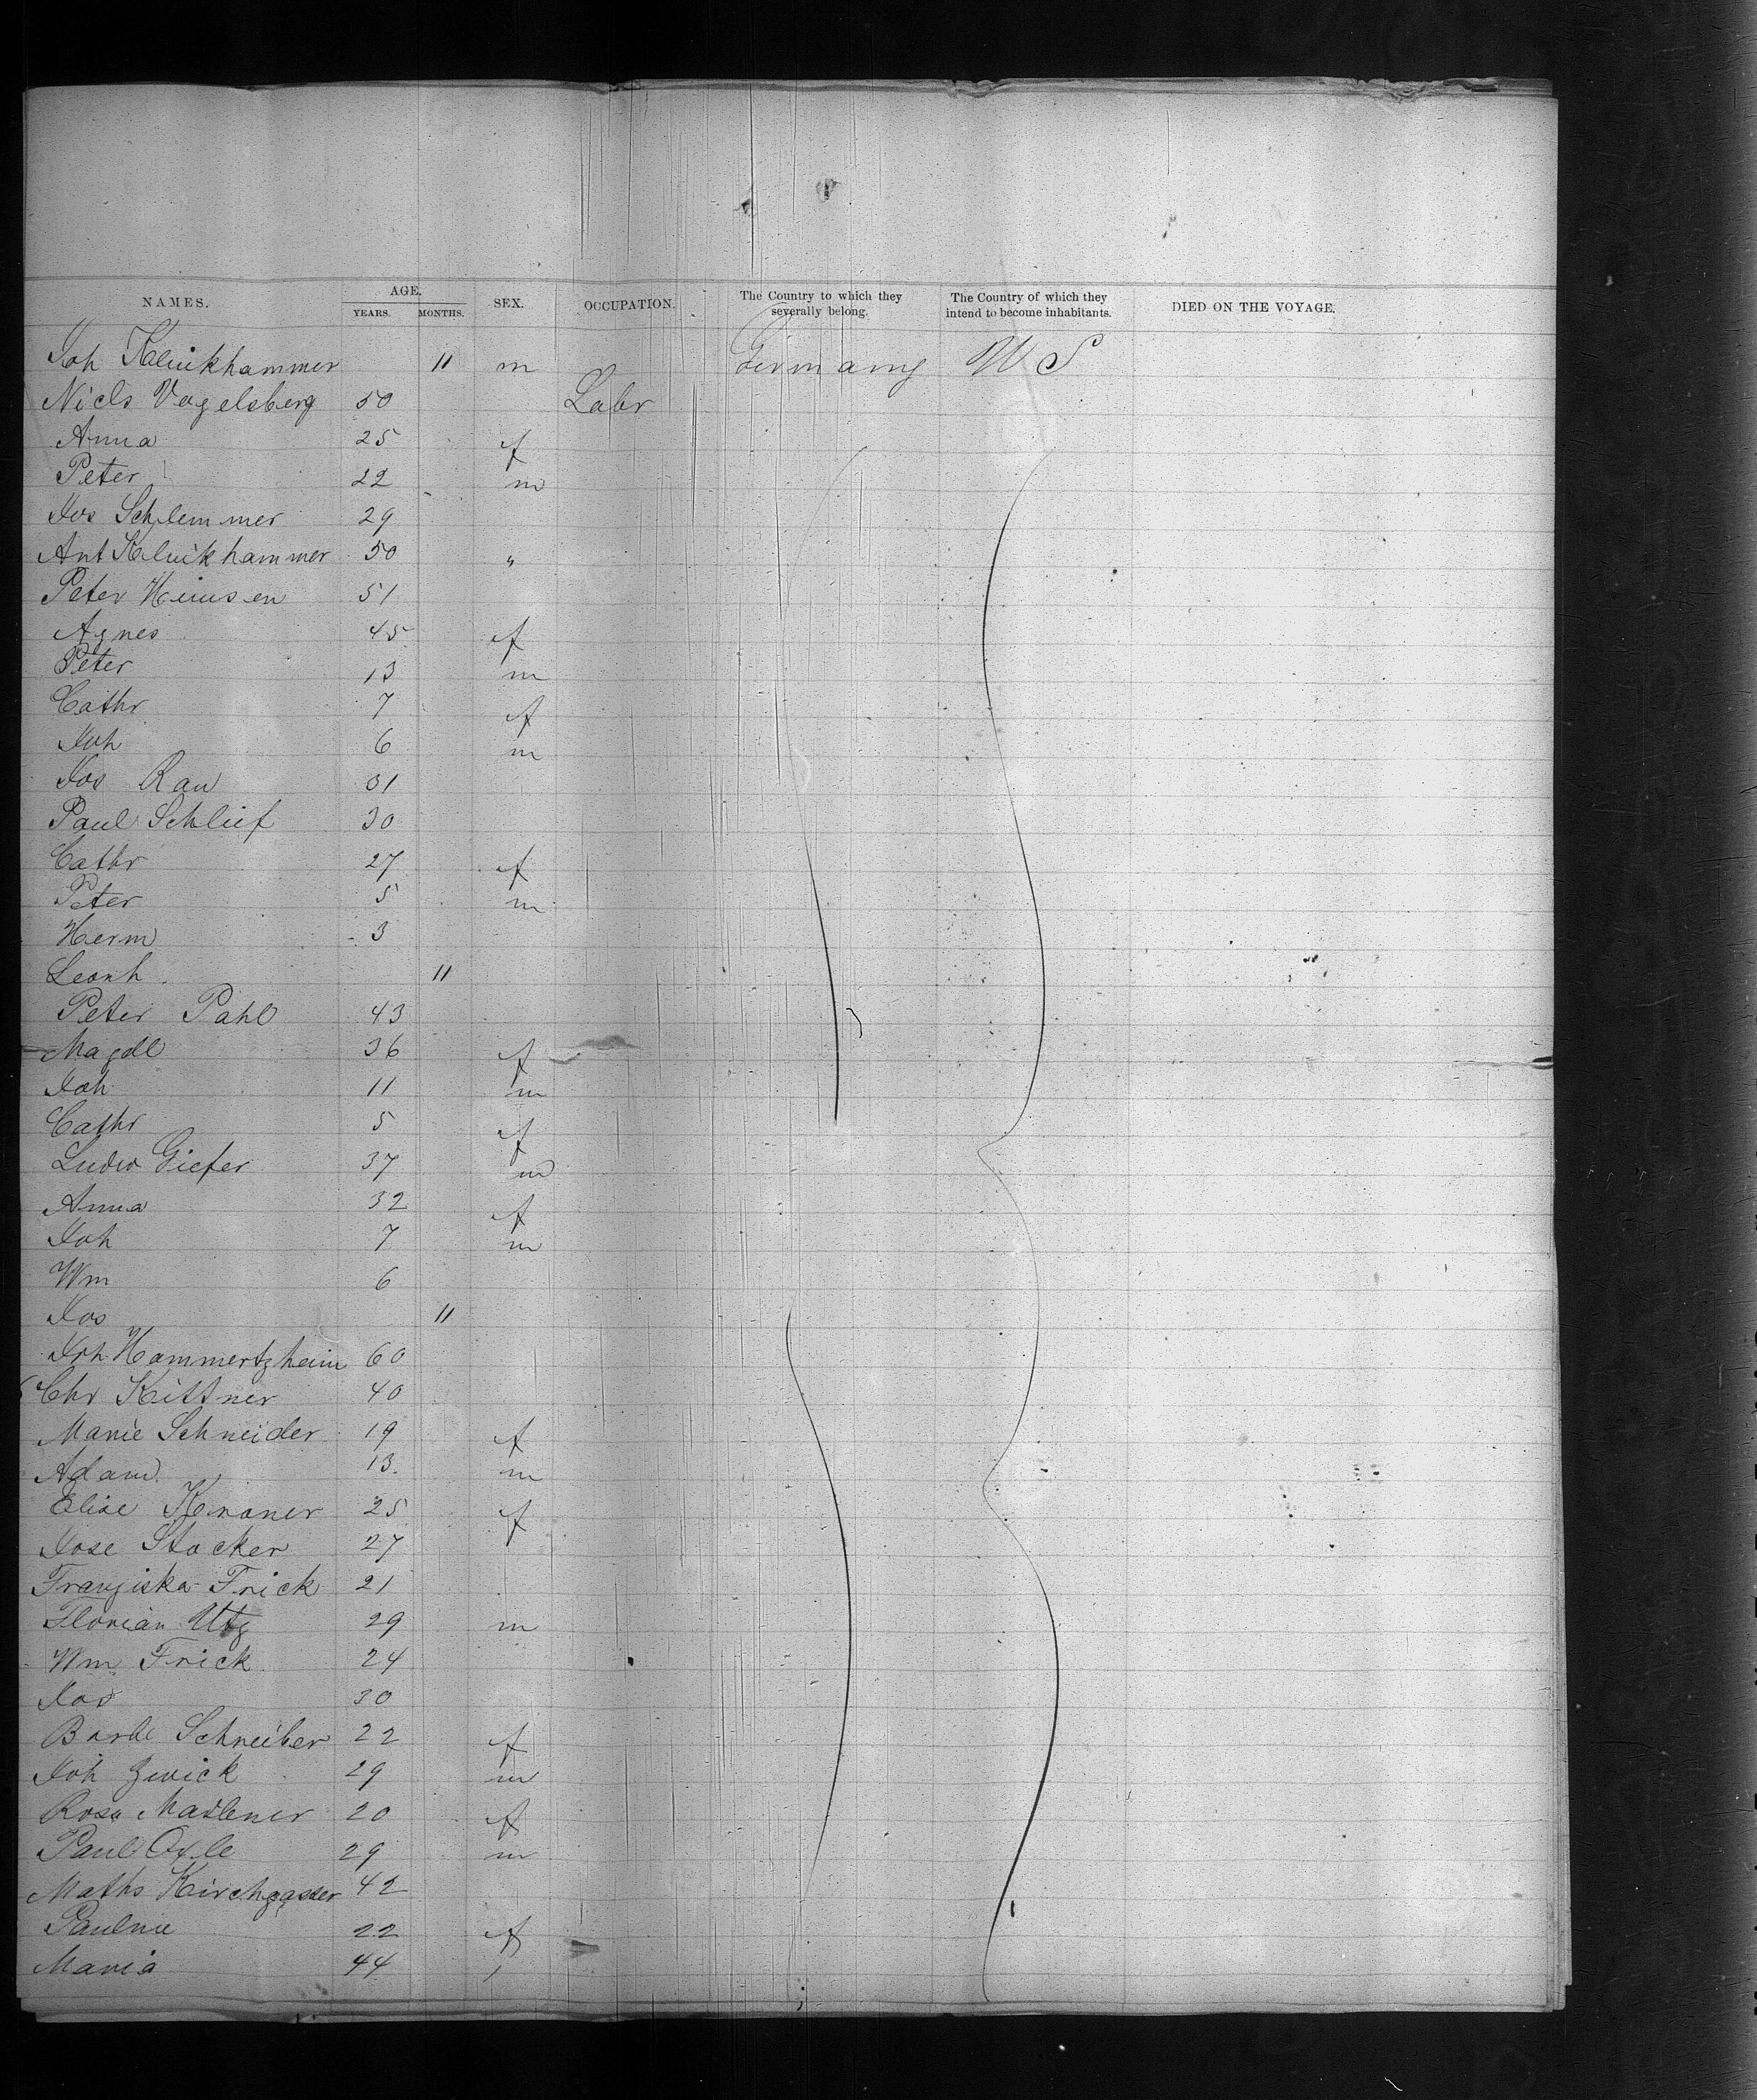 NAMES. AGE. YEARS. MONTHS. SEX. OCCUPATION. The Country to which they severally belong. The Country of which they intend to become inhabitants. DIED ON THE VOYAGE.
Joh Klinkhammer 11 m Germany U S
Nicls Vogelsberg 50 Labr
Anna 25 f
Peter 22 m
Jos Schlemmer 29
Ant Klinkhammer 50 "
Peter Heinsen 51
Agnes 45 f
Peter 13 m
Cathr 7 f
Joh 6 m
Jos Rau 31
Paul Schleif 30
Cathr 27 f
Peter 5 m
Herm 3
Leonh 11
Peter Pahl 43
Magdl 36 f
Joh 11 m
Cathr 5 f
Ludw Giefer 37 m
Anna 32 f
Joh 7 m
Wm 6
Jos 11
Joh Hammertzheim 60
Chr Kittner 40
Marie Schneider 19 f
Adam 13 m
Elise 25 f
Jose Stocker 27
Franziska Frick 21
Florian Utz 29 m
Wm Frick 24
Jos 30
Barbe Schreiber 22 f
Joh Zwick 29 m
Rosa 20 f
Paul 29 m
Maths Kirchgasser 42
Pauline 22 f
Maria 44